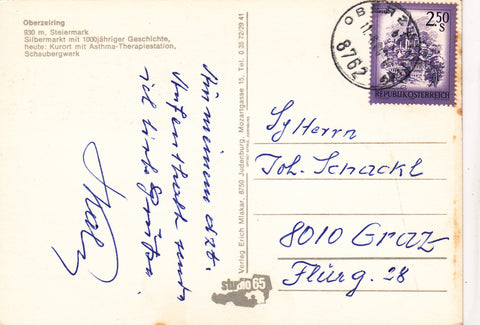 Oberzeiring
930 m, Steiermark
Silbermarkt mit 1000jähriger Geschichte,
heute: Kurort mit Asthma-Therapiestation,
Schaubergwerk
Von meinem derzt.
Aufenthalt sende
ich liebe Grüße
Verlag Erich Mlakar, 8750 Judenburg, Mozartgasse 15, Tel. 0 35 72/29 41
studio 65
8762
2.50
S
REPUBLIK ÖSTERREICH
Herrn
Joh. Schackl
8010 Graz
Flurg. 28